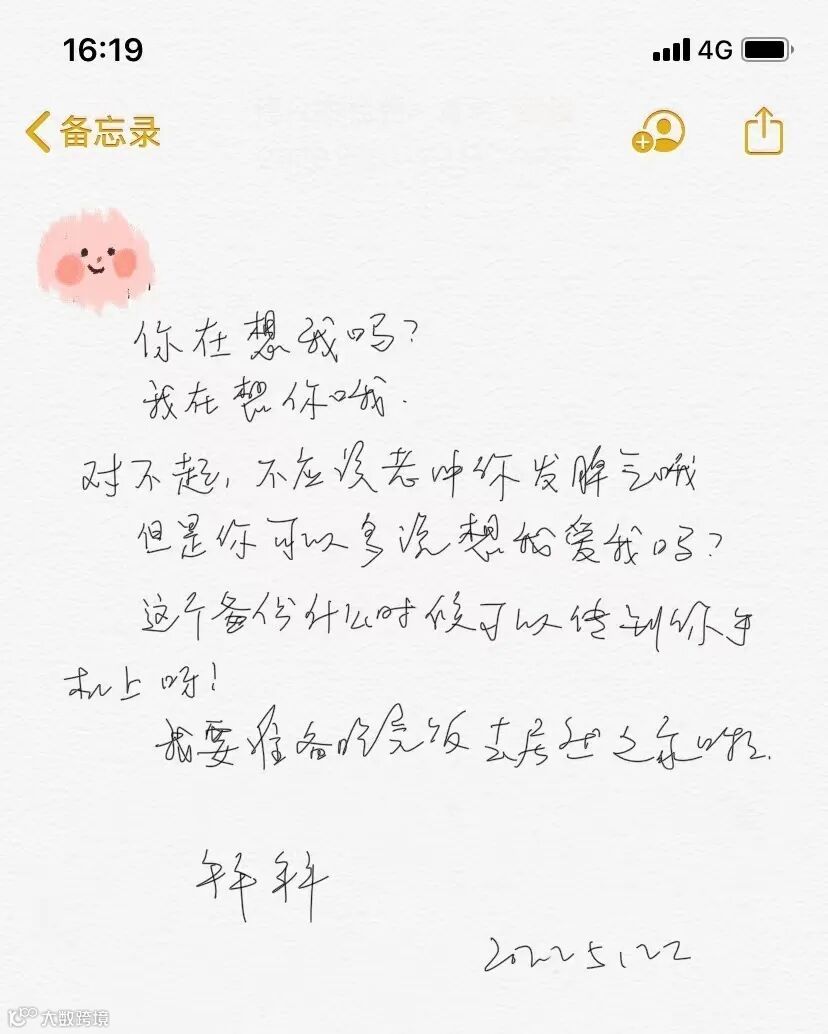 16:19
4G
备忘录
你在想我吗?
我在想你哦.
对不起, 不应该老冲你发脾气哦
但是你可以多说想我爱我吗?
这个备份什么时候可以传到你手
机上呀!
我要准备吃完饭去居然之家啦.
2022 5.22
大数跨境